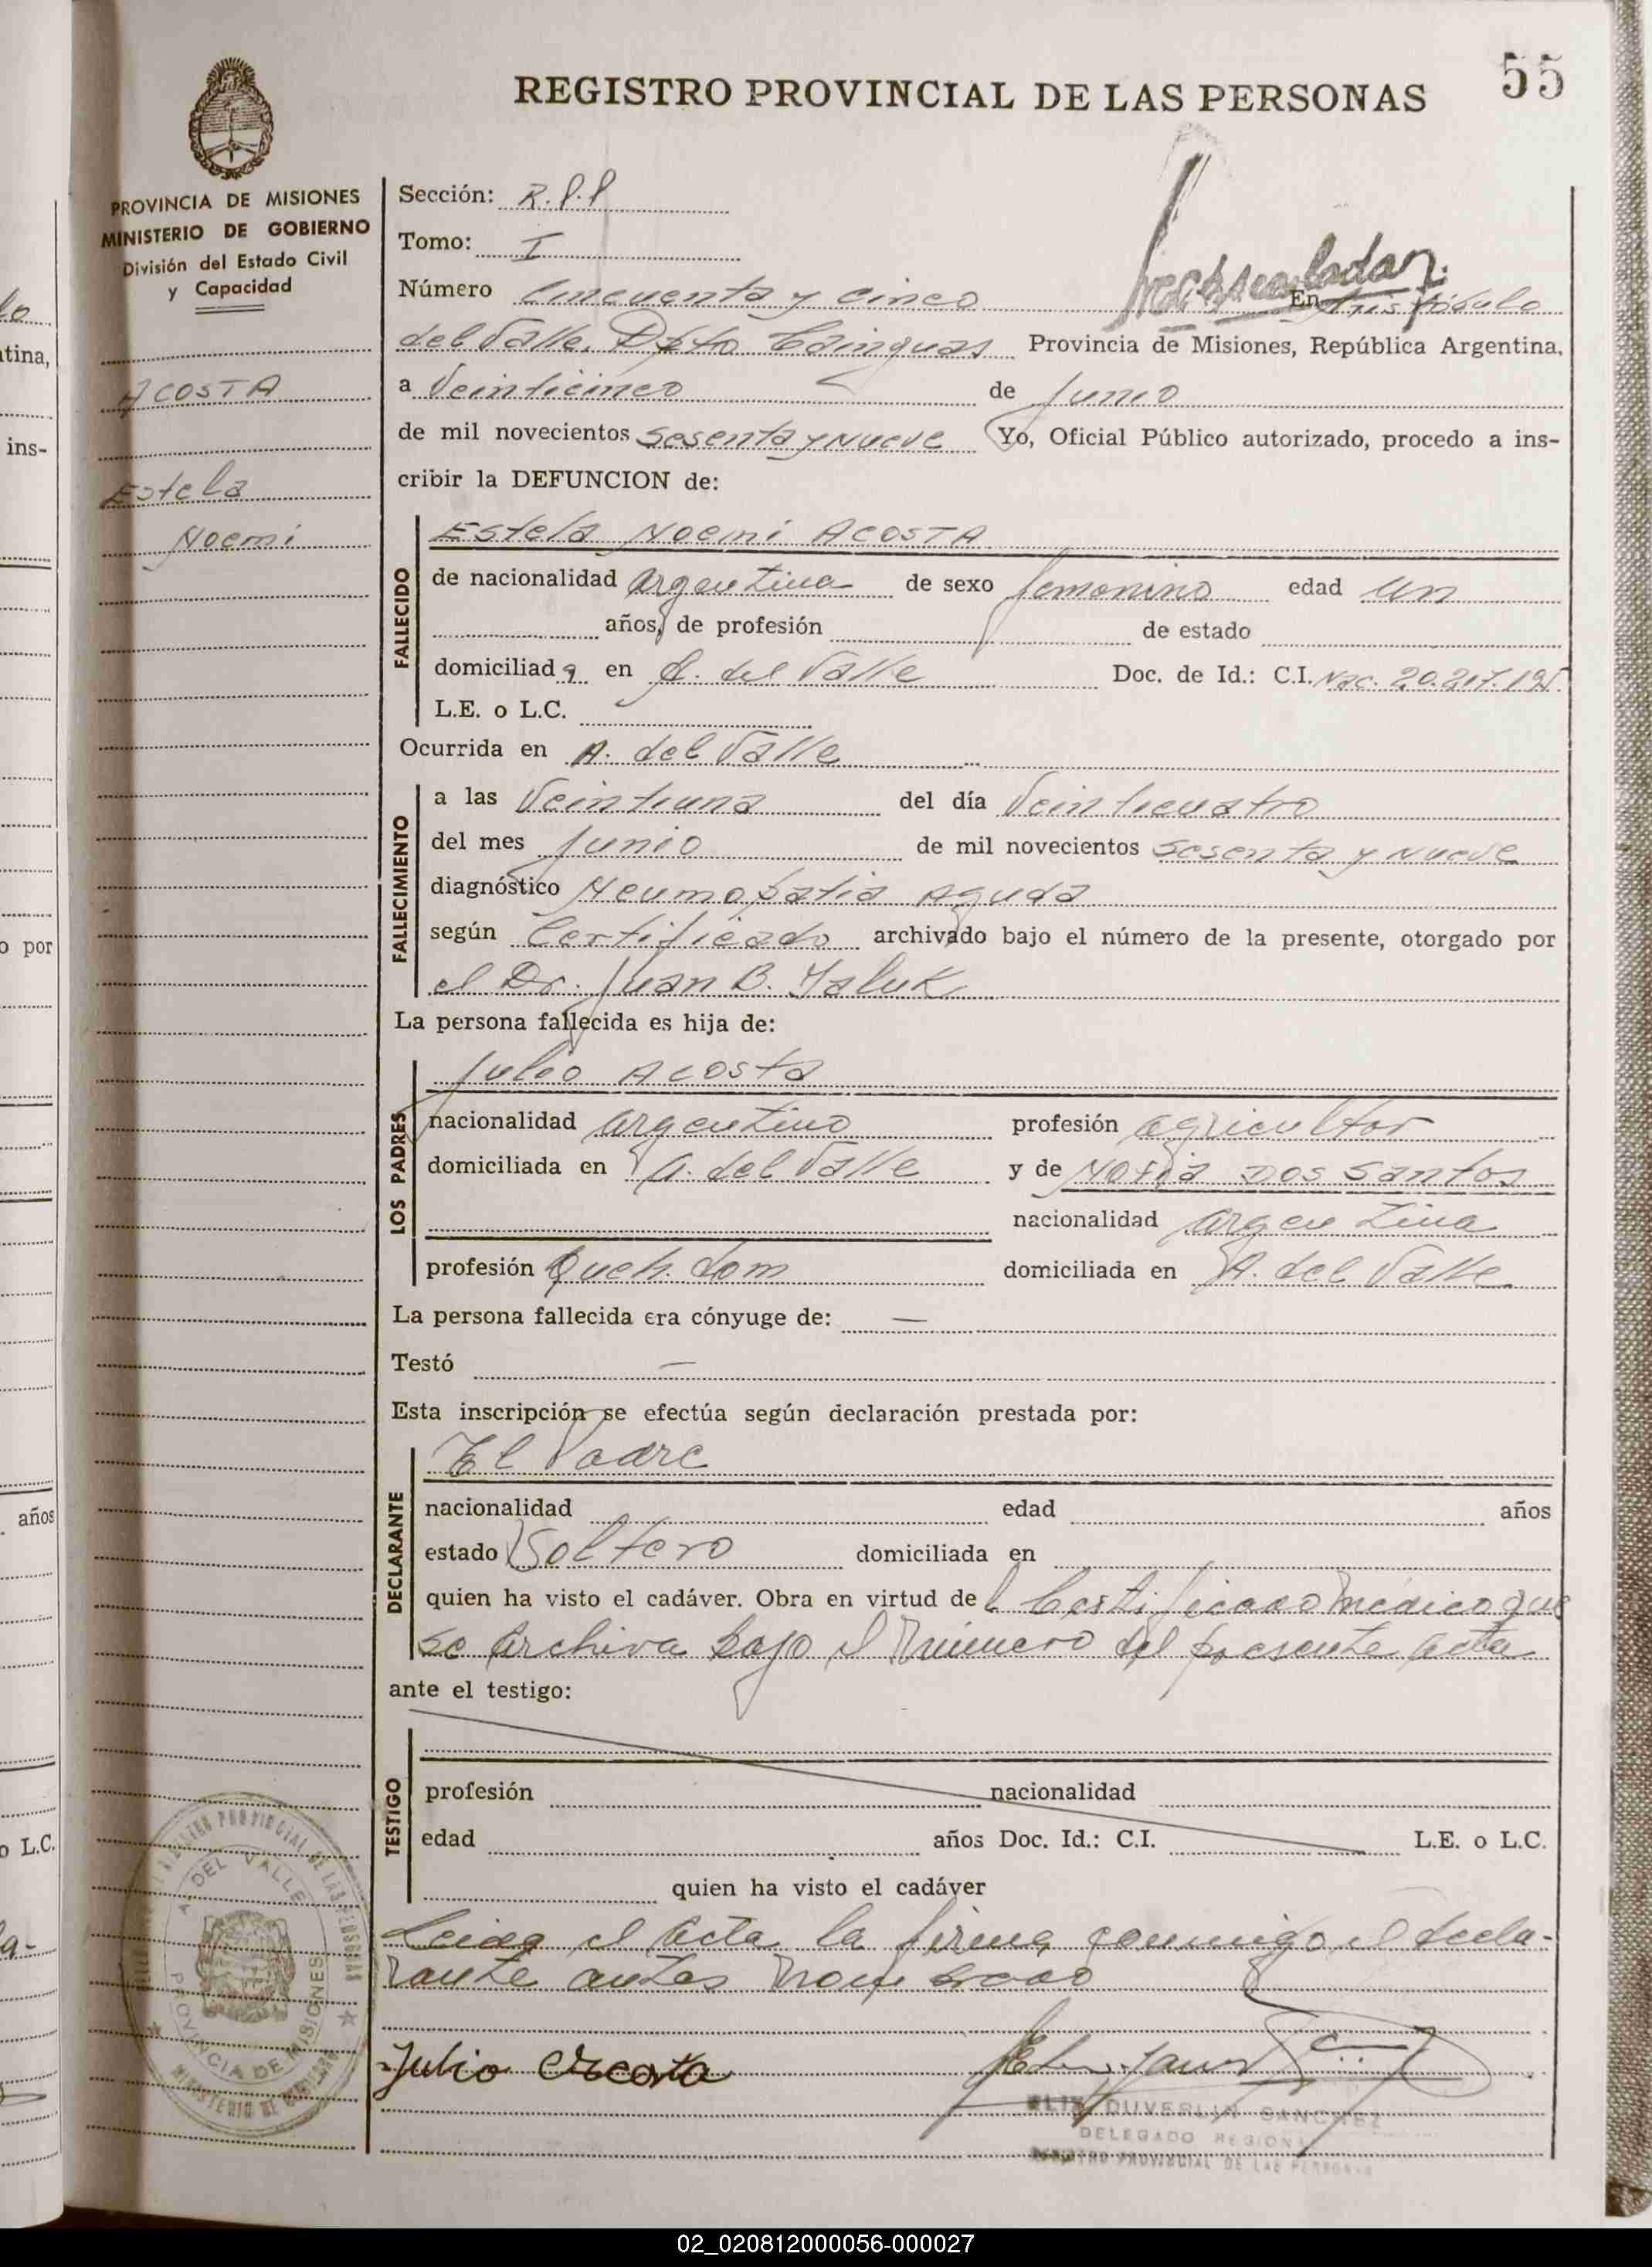 55
REGISTRO PROVINCIAL DE LAS PERSONAS
PROVINCIA DE MISIONES
MINISTERIO DE GOBIERNO
División del Estado Civil
y Capacidad
ACOSTA
Estela
Noemi
Sección: R.P.P
Tomo: I
Número Cincuenta y cinco En Aristóbulo
del Valle, Dpto Cainguas Provincia de Misiones, República Argentina,
a Veinticinco de Junio
de mil novecientos sesenta y Nueve Yo, Oficial Público autorizado, procedo a ins-
cribir la DEFUNCION de:
FALLECIDO
Estela Noemi ACOSTA
de nacionalidad argentina de sexo femenino edad un
años, de profesión de estado
domiciliad a en A. del Valle Doc. de Id.: C.I. Nac. 20.217.195.
L.E. o L.C.
Ocurrida en A. del Valle
FALLECIMIENTO
a las Veintiuna del día Veinticuatro
del mes Junio de mil novecientos sesenta y Nueve
diagnóstico Neumopatia Aguda
según Certificado archivado bajo el número de la presente, otorgado por
el Dr. Juan B. Yaluk
La persona fallecida es hija de:
LOS PADRES
Julio Acosta
nacionalidad argentino profesión agricultor
domiciliada en A. del Valle y de Dos Santos
nacionalidad argentina
profesión Queh. dom domiciliada en A. del Valle
La persona fallecida era cónyuge de: —
Testó —
Esta inscripción se efectúa según declaración prestada por:
DECLARANTE
El Padre
nacionalidad edad años
estado Soltero domiciliada en
quien ha visto el cadáver. Obra en virtud del Certificado médico que
se archiva bajo el número del presente acta
ante el testigo:
TESTIGO
profesión nacionalidad
edad años Doc. Id.: C.I. L.E. o L.C.
quien ha visto el cadáver
Leida el acta la firma conmigo el decla-
rante antes nombrado
Julio Acosta
DUVERLIN SANCHEZ
DELEGADO REGIONAL
REGISTRO PROVINCIAL DE LAS PERSONAS
REGISTRO PROVINCIAL DE LAS PERSONAS
A. DEL VALLE
PROVINCIA DE MISIONES
MINISTERIO DE GOBIERNO
lo
tina,
ins-
o por
años
o L.C.
a-
02_020812000056-000027